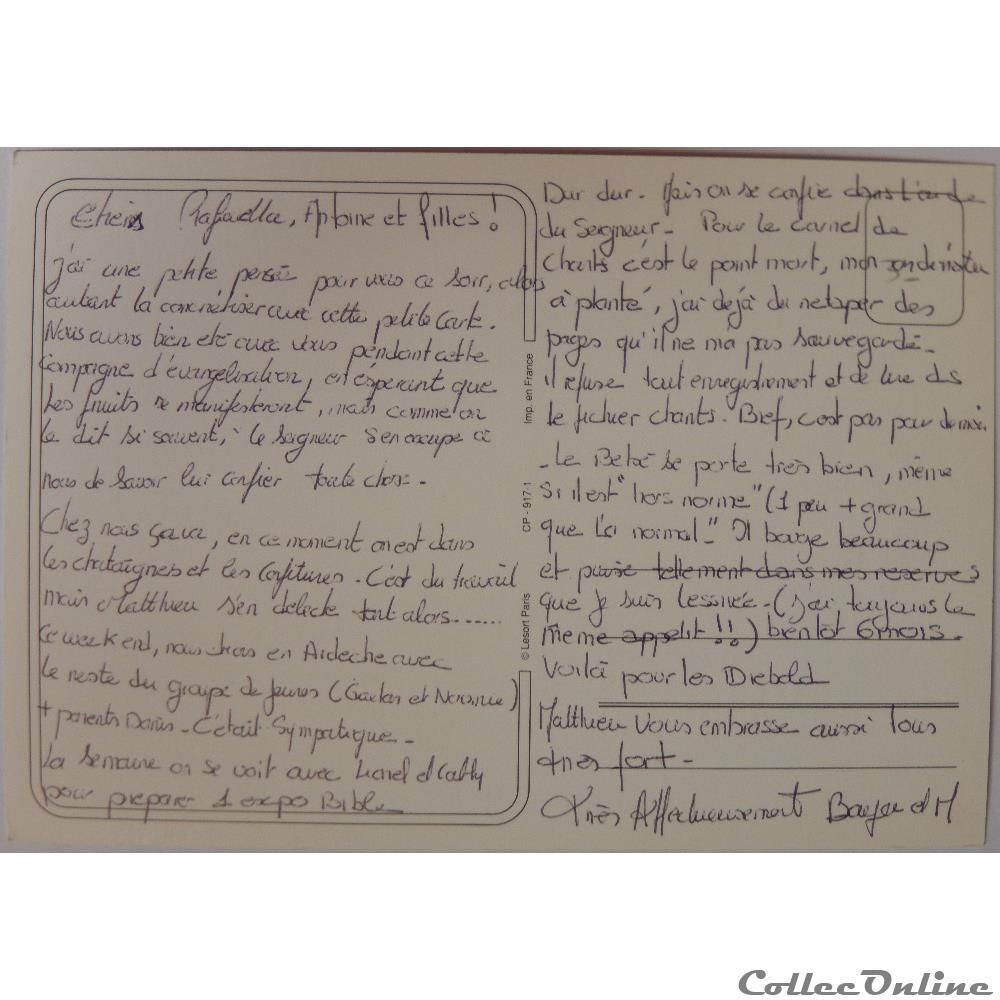 Chers Rafaella, Antoine et filles !
J'ai une petite pensée pour vous ce soir, alors
autant la concrétiser avec cette petite Carte.
Nous avons bien été avec vous pendant cette
Campagne d'évangélisation, en espérant que
les fruits se manifesteront, mais comme on
le dit si souvent, le Seigneur s'en occupe à
nous de savoir lui confier toute chose.
Chez nous ça va, en ce moment on est dans
les chataîgnes et les Confitures. C'est du travail
mais Matthieu s'en délecte tout alors......
Ce week end, nous étions en Ardèche avec
le reste du groupe de Jeunes (Gaetan et )
+ parents . C'était Sympatique.
La Semaine on se voit avec Lionel et Cathy
pour préparer 1 expo Bible
Dur dur. Mais on se confie dans l'aide
du Seigneur. Pour le Carnet de
Chants c'est le point mort, mon ordinateur
à planté, j'ai dejà du retaper des
pages qu'il ne m'a pas sauvegardé.
il refuse tout enregistrement et de lire ds
le fichier chants. Bref, c'est pas pour demain
. Le Bébé se porte très bien, même
Si il est "hors norme" (1 peu + grand
que la normal." Il bouge beaucoup
et puise tellement dans mes réserves
que je suis lessivée. (J'ai toujours le
même appetit !!) bientôt 6 mois.
Voilà pour les Diebold
Matthieu vous embrasse aussi tous
très fort -
Très Affectueusement et M
Imp. en France
CP - 917-1
© Lesort Paris
CollecOnline